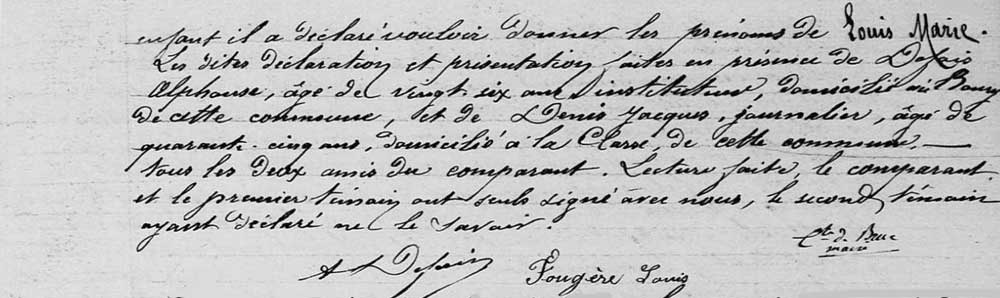 enfant il a déclaré vouloir donner les prénoms de Louis Marie.
Les dites déclaration et présentation faites en présence de
Alphonse, âgé de vingt six ans instituteur, domicilié au Bourg
de cette commune, et de Denis Jacques, journalier, âgé de
quarante-cinq ans, domicilié à la de cette commune,
tous les deux amis du comparant. Lecture faite, le comparant
et le premier témoin ont seuls signé avec nous, le second témoin
ayant déclaré ne le savoir.
maire
Fougère Louis